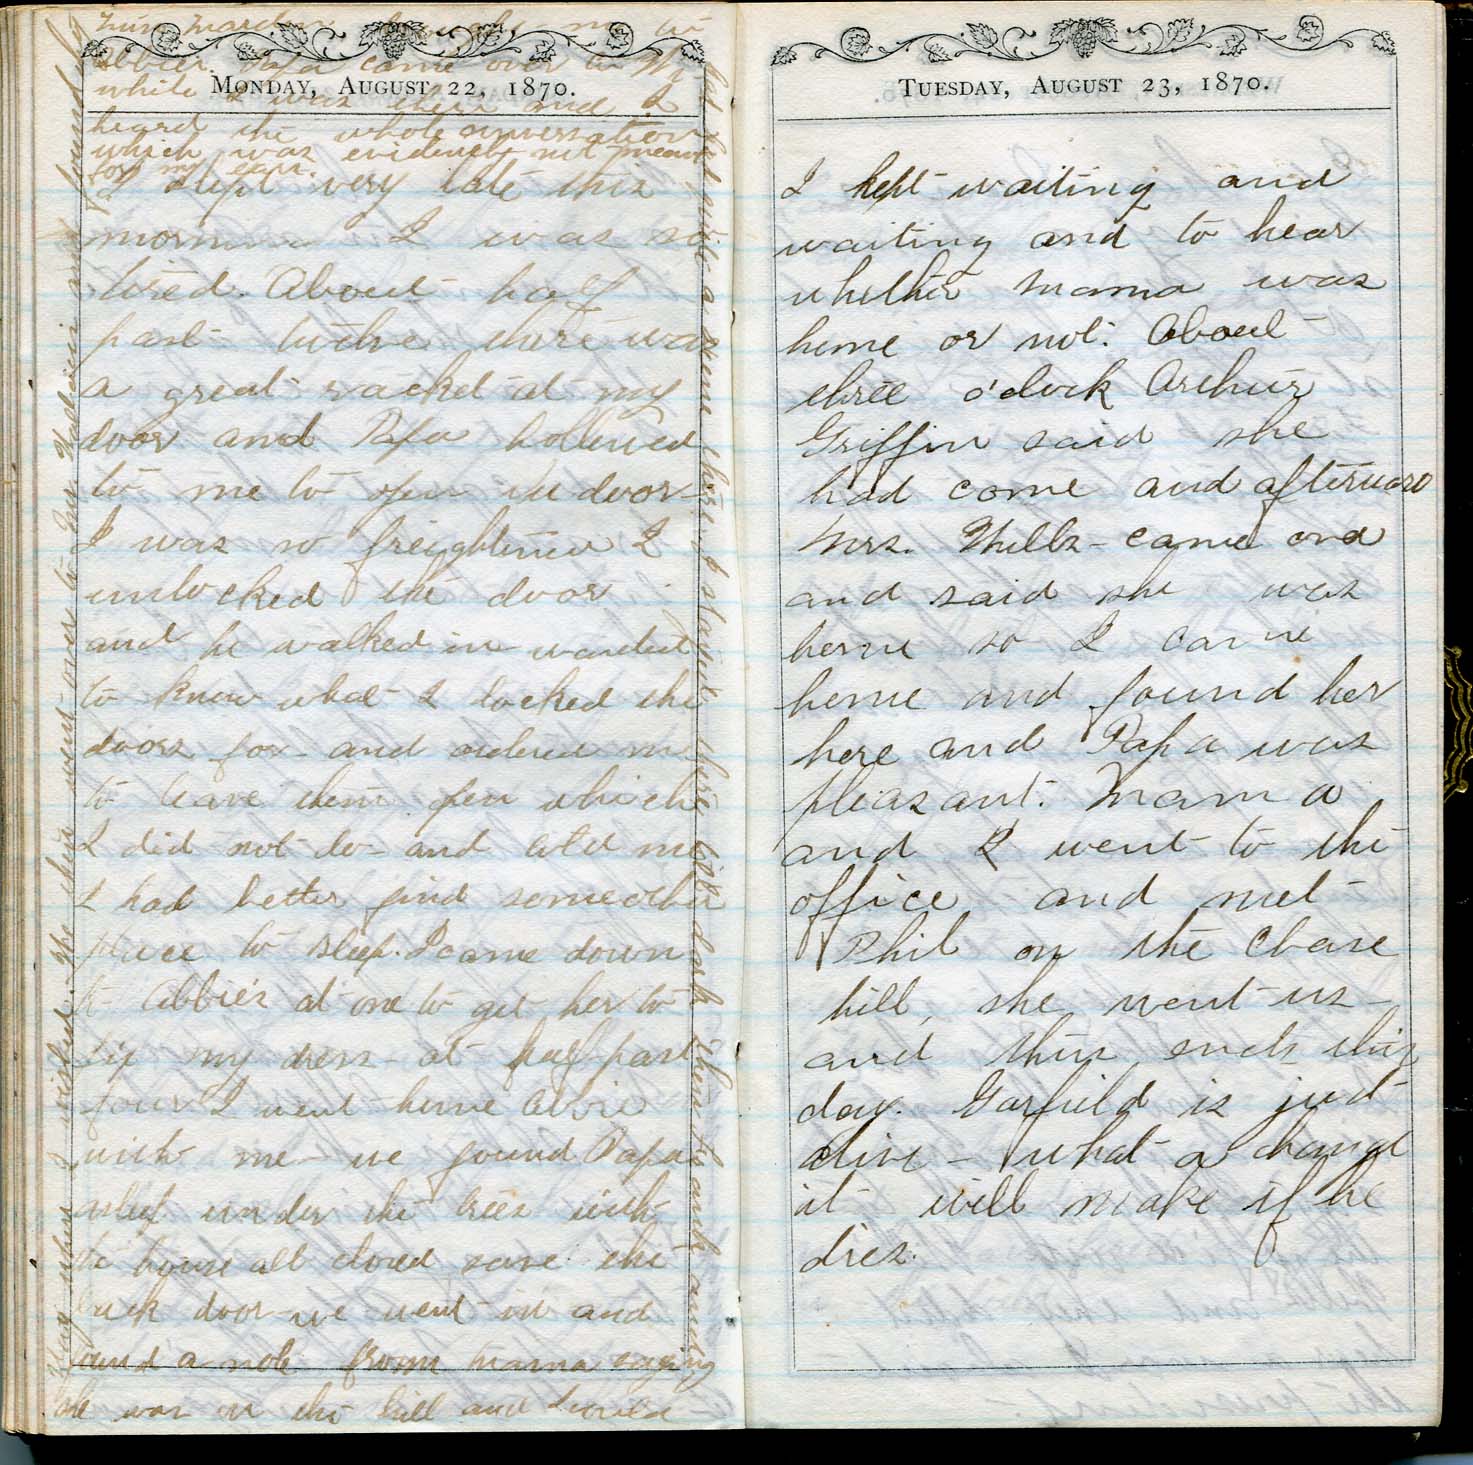 MONDAY, AUGUST 22, 1870.
I slept very late this
morning I was so
tired. About half
past twelve there was
a great racket at my
door and Papa hollered
to me to open the door
I was so freightened I
unlocked the door
and he walked in wanted
to know what I locked the
doors for and ordered me
to leave them open which
I did not do and told me
I had better find some other
place to sleep. I came down
to Abbie's at one to get her to
fix my dress at half past
four I went home Abbie
with me we found Papa
asleep under the trees with
the house all closed save the
back door we went in and
found a note from Mama saying
she was on the hill and I could
stay when I wished. We then went over to
found
but quite a scene there I staid there till dark then
Abbie's. Papa came over to
while I was there and I
heard the whole conversation
which was evidently not meant
for my ears.
TUESDAY, AUGUST 23, 1870.
I kept waiting and
waiting and to hear
whether Mama was
home or not. About
three o'clock Arthur
Griffin said she
had come and afterward
Mrs. came and
and said she was
home so I came
home and found her
here and Papa was
pleasant. Mama
and I went to the
office and met
Phil on the Chase
hill, she went us
and thus ends this
day. Garfield is just
alive - what a change
it will make if he
dies.